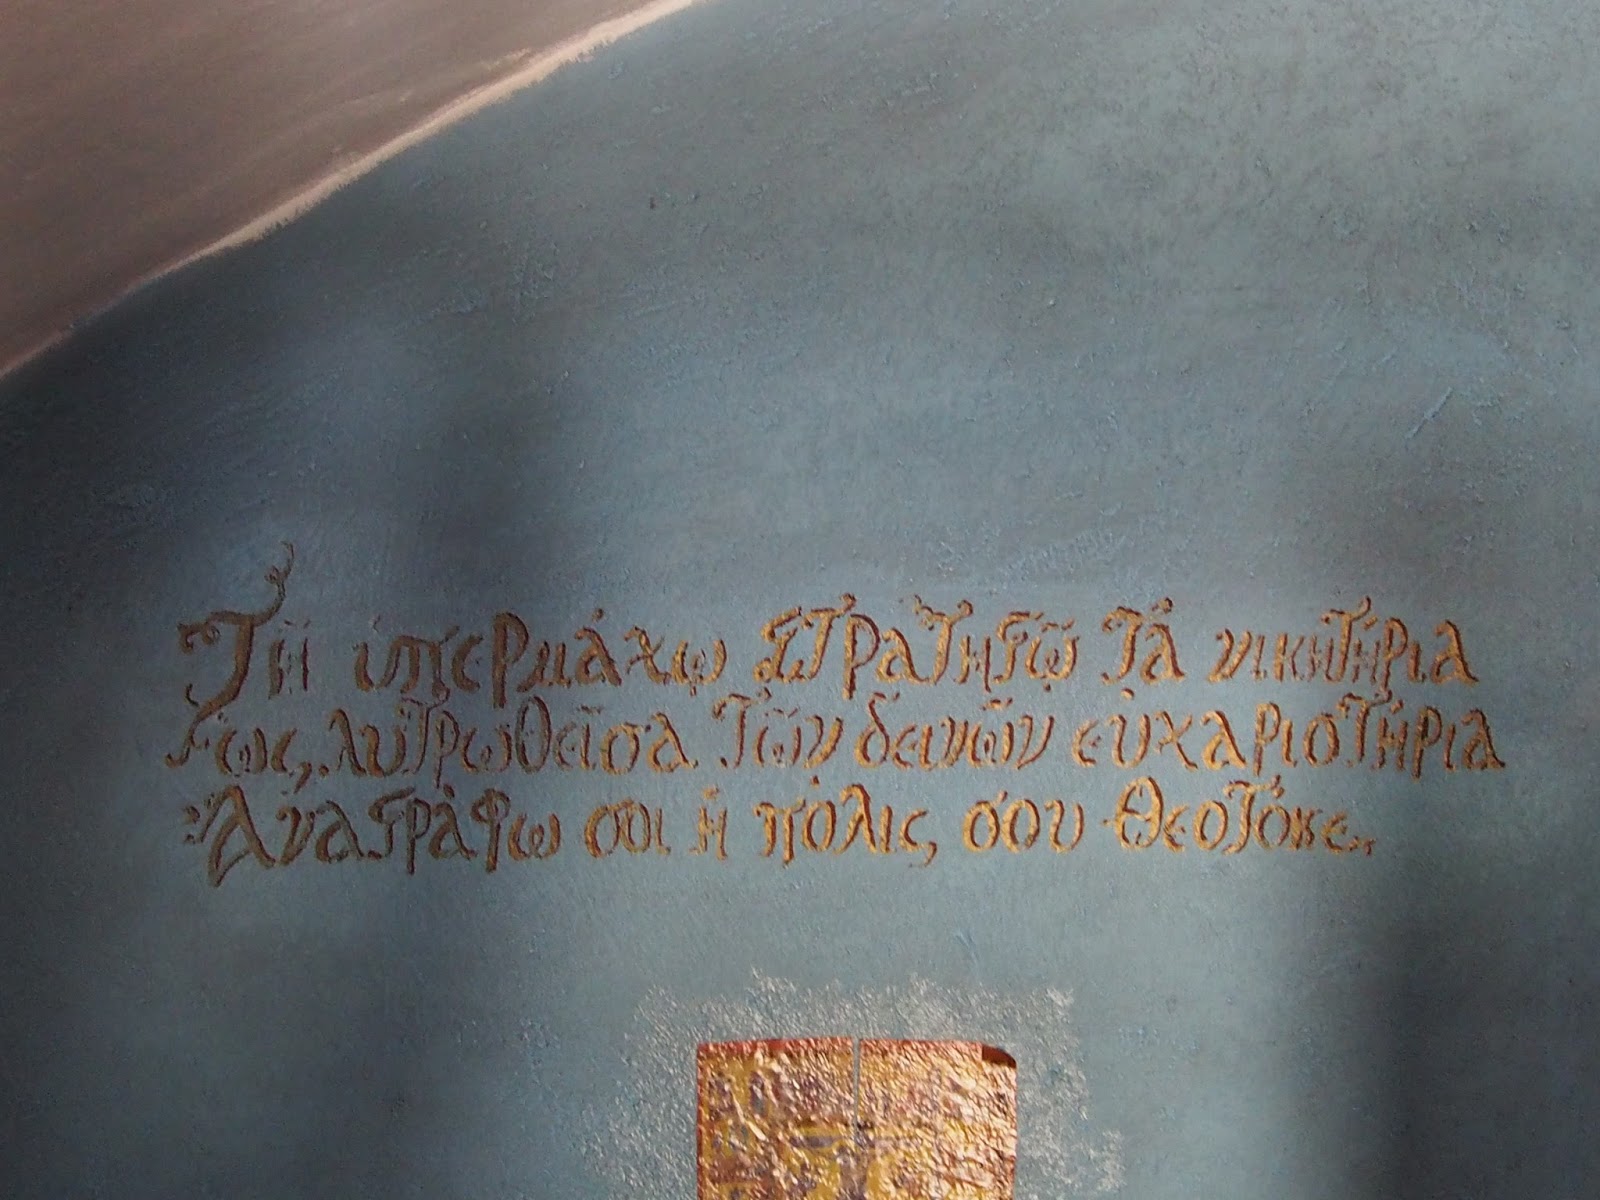 Τῇ ὑπερμάχῳ στρατηγῷ τὰ νικητήρια
ὡς λυτρωθεῖσα τῶν δεινῶν εὐχαριστήρια
Ἀναγράφω σοι ἡ πόλις σου Θεοτόκε.